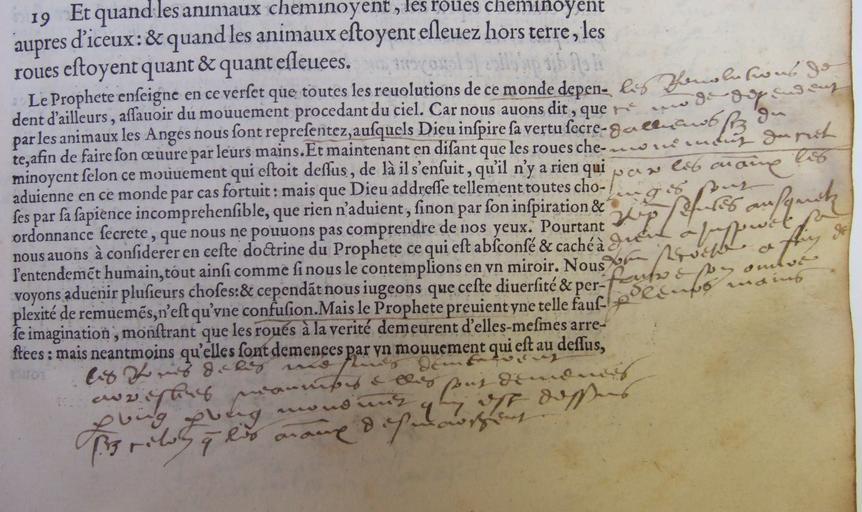 19 Et quand les animaux cheminoyent, les roues cheminoyent
aupres d'iceux: & quand les animaux eſtoyent eſleuez hors terre, les
roues eſtoyent quant & quant eſleuees.
Le Prophete enſeigne en ce verſet que toutes les reuolutions de ce monde depen-
dent d'ailleurs, aſſauoir du mouuement procedant du ciel. Car nous auons dit, que
par les animaux les Anges nous ſont repreſentez, auſquels Dieu inſpire ſa vertu ſecre-
te, afin de faire ſon œuure par leurs mains. Et maintenant en diſant que les roues che-
minoyent ſelon ce mouuement qui eſtoit deſſus, de là il s'enſuit, qu'il n'y a rien qui
aduienne en ce monde par cas fortuit: mais que Dieu addreſſe tellement toutes cho-
ſes par ſa ſapience incomprehenſible, que rien n'aduient, ſinon par ſon inſpiration &
ordonnance ſecrete, que nous ne pouuons pas comprendre de nos yeux. Pourtant
nous auons à conſiderer en ceſte doctrine du Prophete ce qui eſt abſconſé & caché à
l'entendemẽt humain, tout ainſi comme ſi nous le contemplions en vn miroir. Nous
voyons aduenir pluſieurs choſes: & cependãt nous iugeons que ceſte diuerſité & per-
plexité de remuemẽs, n'eſt qu'vne confuſion. Mais le Prophete preuient vne telle fauſ-
ſe imagination, monſtrant que les roues à la verité demeurent d'elles-meſmes arre-
ſtees: mais neantmoins qu'elles ſont demenees par vn mouuement qui eſt au deſſus,
les Reuolutions de
ce mõde dependent
dallieurs du
mouuement du ciel
par les aĩaux les
anges sont
auſquelz
dieu
secrete afin de
faire son œuure
leurs mains
les Roues delles mesmes demeurent
arrestees neaumois elles sont demenees
mouuemẽt quy est dessus
les aĩaux desmarchent